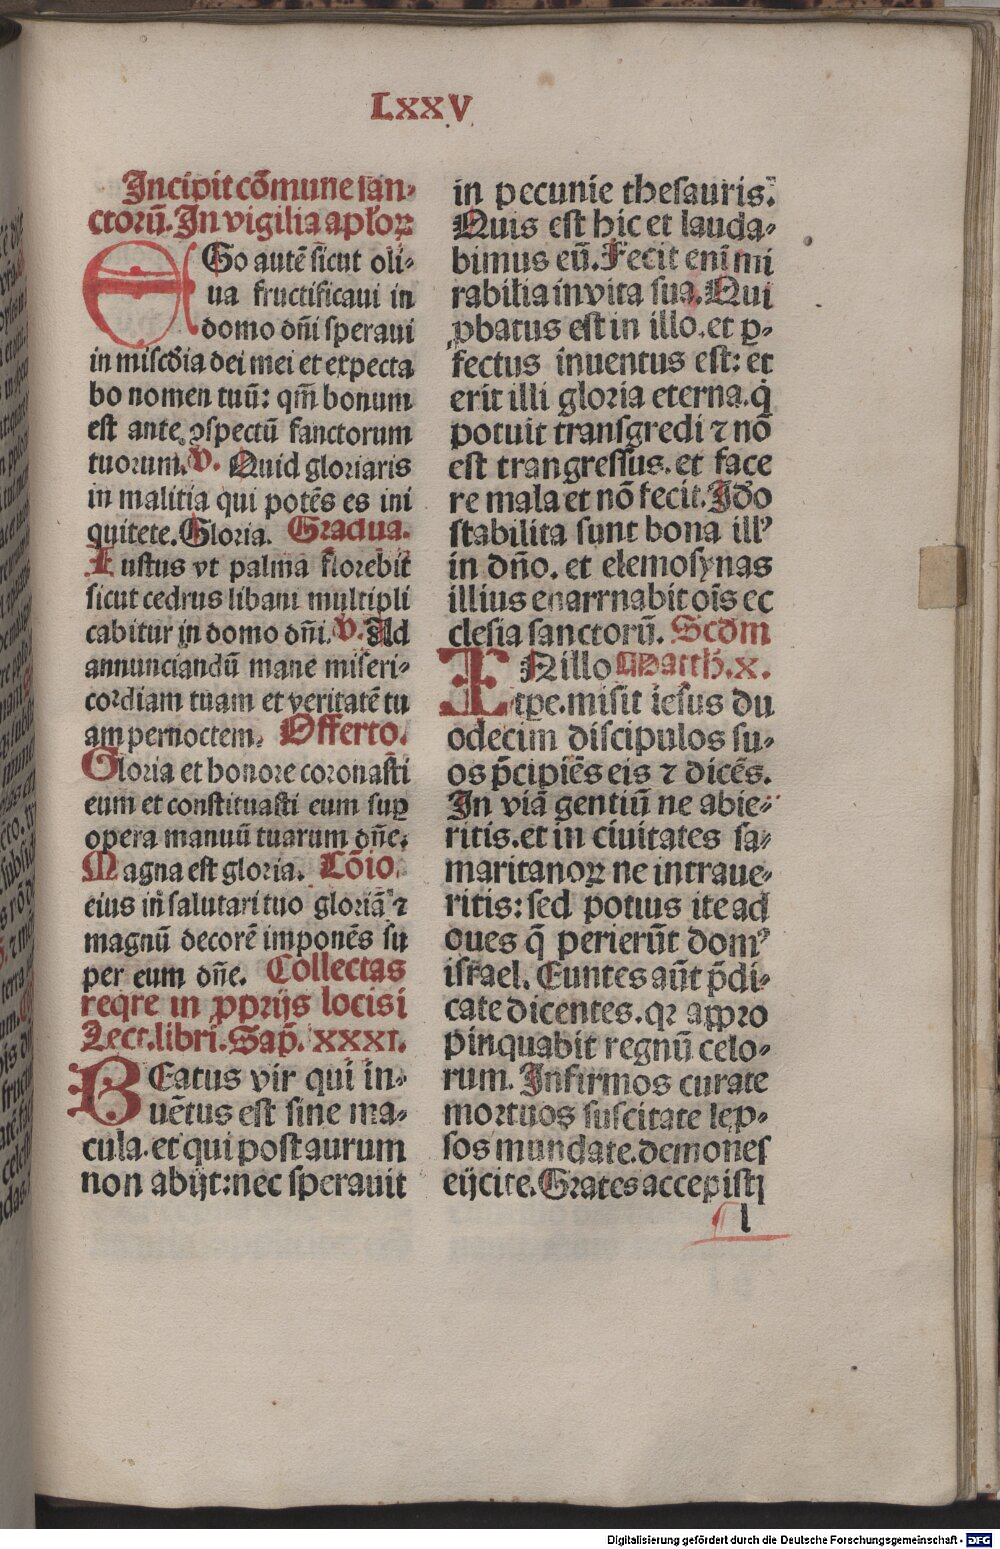 LXXV
Incipit cōmune san-
ctorū. In vigilia aplorꝝ
EGo autē sicut oli-
ua fructificaui in
domo dn̄i speraui
in miscd̄ia dei mei et expecta
bo nomen tuū: qm̄ bonum
est ante ꝯspectū sanctorum
tuorum. V. Quid gloriaris
in malitia qui potēs es ini
quitete. Gloria. Gradua.
Iustus vt palma florebit
sicut cedrus libani multipli
cabitur in domo dn̄i. V. Ad
annunciandū mane miseri-
cordiam tuam et veritatē tu
am per noctem. Offerto.
Gloria et honore coronasti
eum et constituasti eum suꝑ
opera manuū tuarum dn̄e.
Magna est gloria. Cōio.
eius in salutari tuo gloriā ⁊
magnū decorē imponēs su
per eum dn̄e. Collectas
reqre in ꝓprijs locis i
Lect. libri. Sap̄. XXXI.
BEatus vir qui in-
uētus est sine ma-
cula. et qui post aurum
non abijt: nec sperauit
in pecunie thesauris.
Quis est hic et lauda-
bimus eū. Fecit eni mi
rabilia in vita sua. Qui
ꝓbatus est in illo. et ꝑ-
fectus inuentus est: et
erit illi gloria eterna. q̇
potuit transgredi ⁊ nō
est trangressus. et face
re mala et nō fecit. Idō
stabilita sunt bona illꝰ
in dn̄o. et elemosynas
illius enarrnabit oīs ec
clesia sanctorū. Scd̄m
INillo Matth. X.
tꝑe. misit iesus du
odecim discipulos su-
os p̄cipiēs eis ⁊ dicēs.
In viā gentiū ne abie-
ritis. et in ciuitates sa-
maritanoꝝ ne intraue-
ritis: sed potius ite ad
oues q̄ perierūt domꝰ
israel. Euntes aūt p̄di-
cate dicentes. qꝛ appro
pinquabit regnū celo-
rum. Infirmos curate
mortuos suscitate lep-
sos mundate. demones
eijcite. Grates accepisti
l
Digitalisierung gefördert durch die Deutsche Forschungsgemeinschaft - DFG